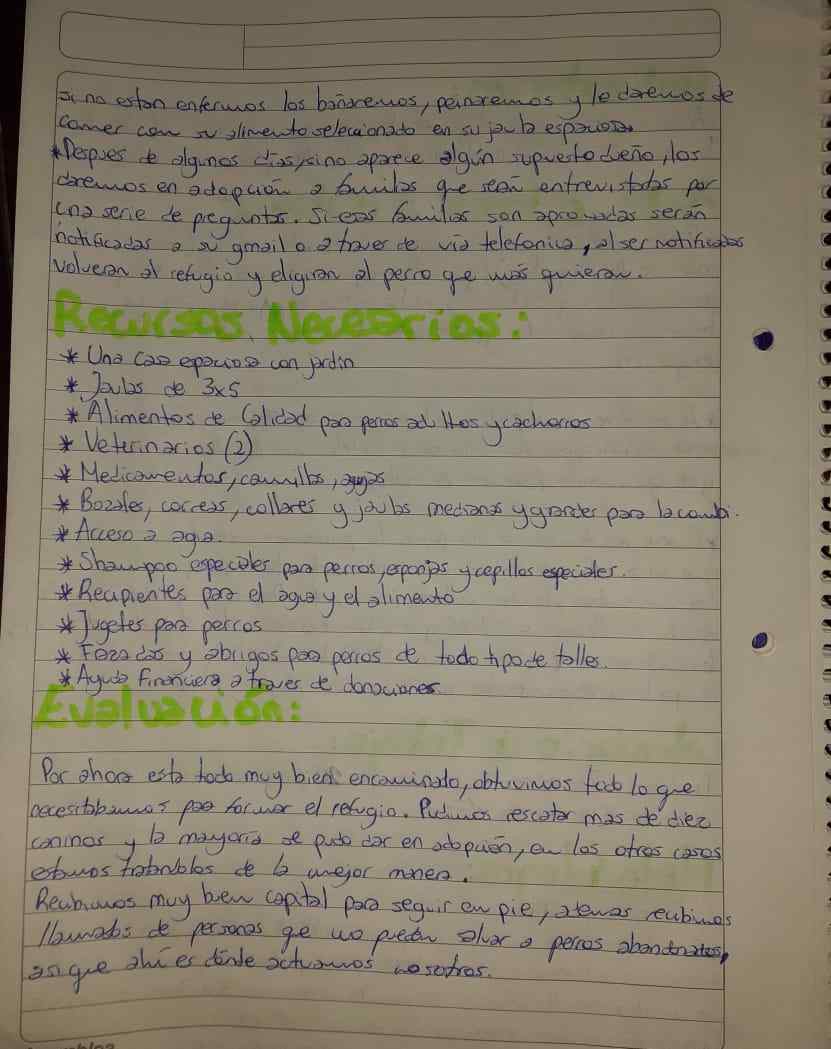 Si no estan enfermos los bañaremos, peinaremos y le daremos de
comer con su alimento seleccionado en su jaula espaciosa.
*Despues de algunos días, sino aparece algún supuesto dueño, los
daremos en adopción a familas qe sean entrevistadas por
una serie de preguntas. Si esas familias son aprovadas serán
notificadas a su gmail o a traver de vía telefonica, al ser notificadas
volveran al refugio y eligiran al perro qe más quieran.
Recursos Necesarios:
* Una casa epaciosa con jardin
* Jaulas de 3x5
* Alimentos de Calidad para perros adultos y cachorros
* Veterinarios (2)
* Medicamentos, camillas, agujas
* Bozales, correas, collares y jaulas medianas y grandes para la combi.
* Acceso a aga.
* Shampoo especiales para perros, esponjas y cepillos especiales.
* Recipientes para el agua y el alimento
* Jugetes para perros
* Frazadas y abrigos para perros de todo tipo de talles.
* Ayuda financiera a traves de donaciones.
Evaluación:
Por ahora esta todo muy bien encaminado, obtuvimos todo lo que
necesitabamos para formar el refugio. Pudimos rescatar mas de diez
caninos y la mayoría se pudo dar en adopción, en los otros casos
estamos tratandolos de la mejor manera.
Recibimos muy bien capital para seguir en pie, ademas recibimos
llamadas de personas qe no puedn salvar a perros abandonados,
asi que ahí es dónde actuamos nosotros.